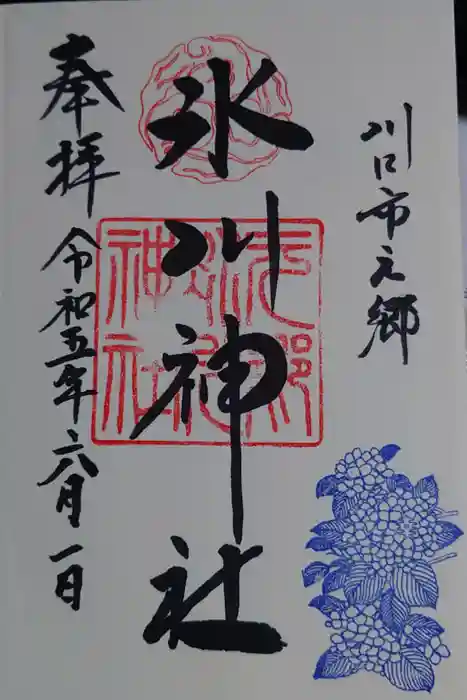 川口市元郷
氷川神社
元郷
氷川
神社
奉拝
令和五年六月一日